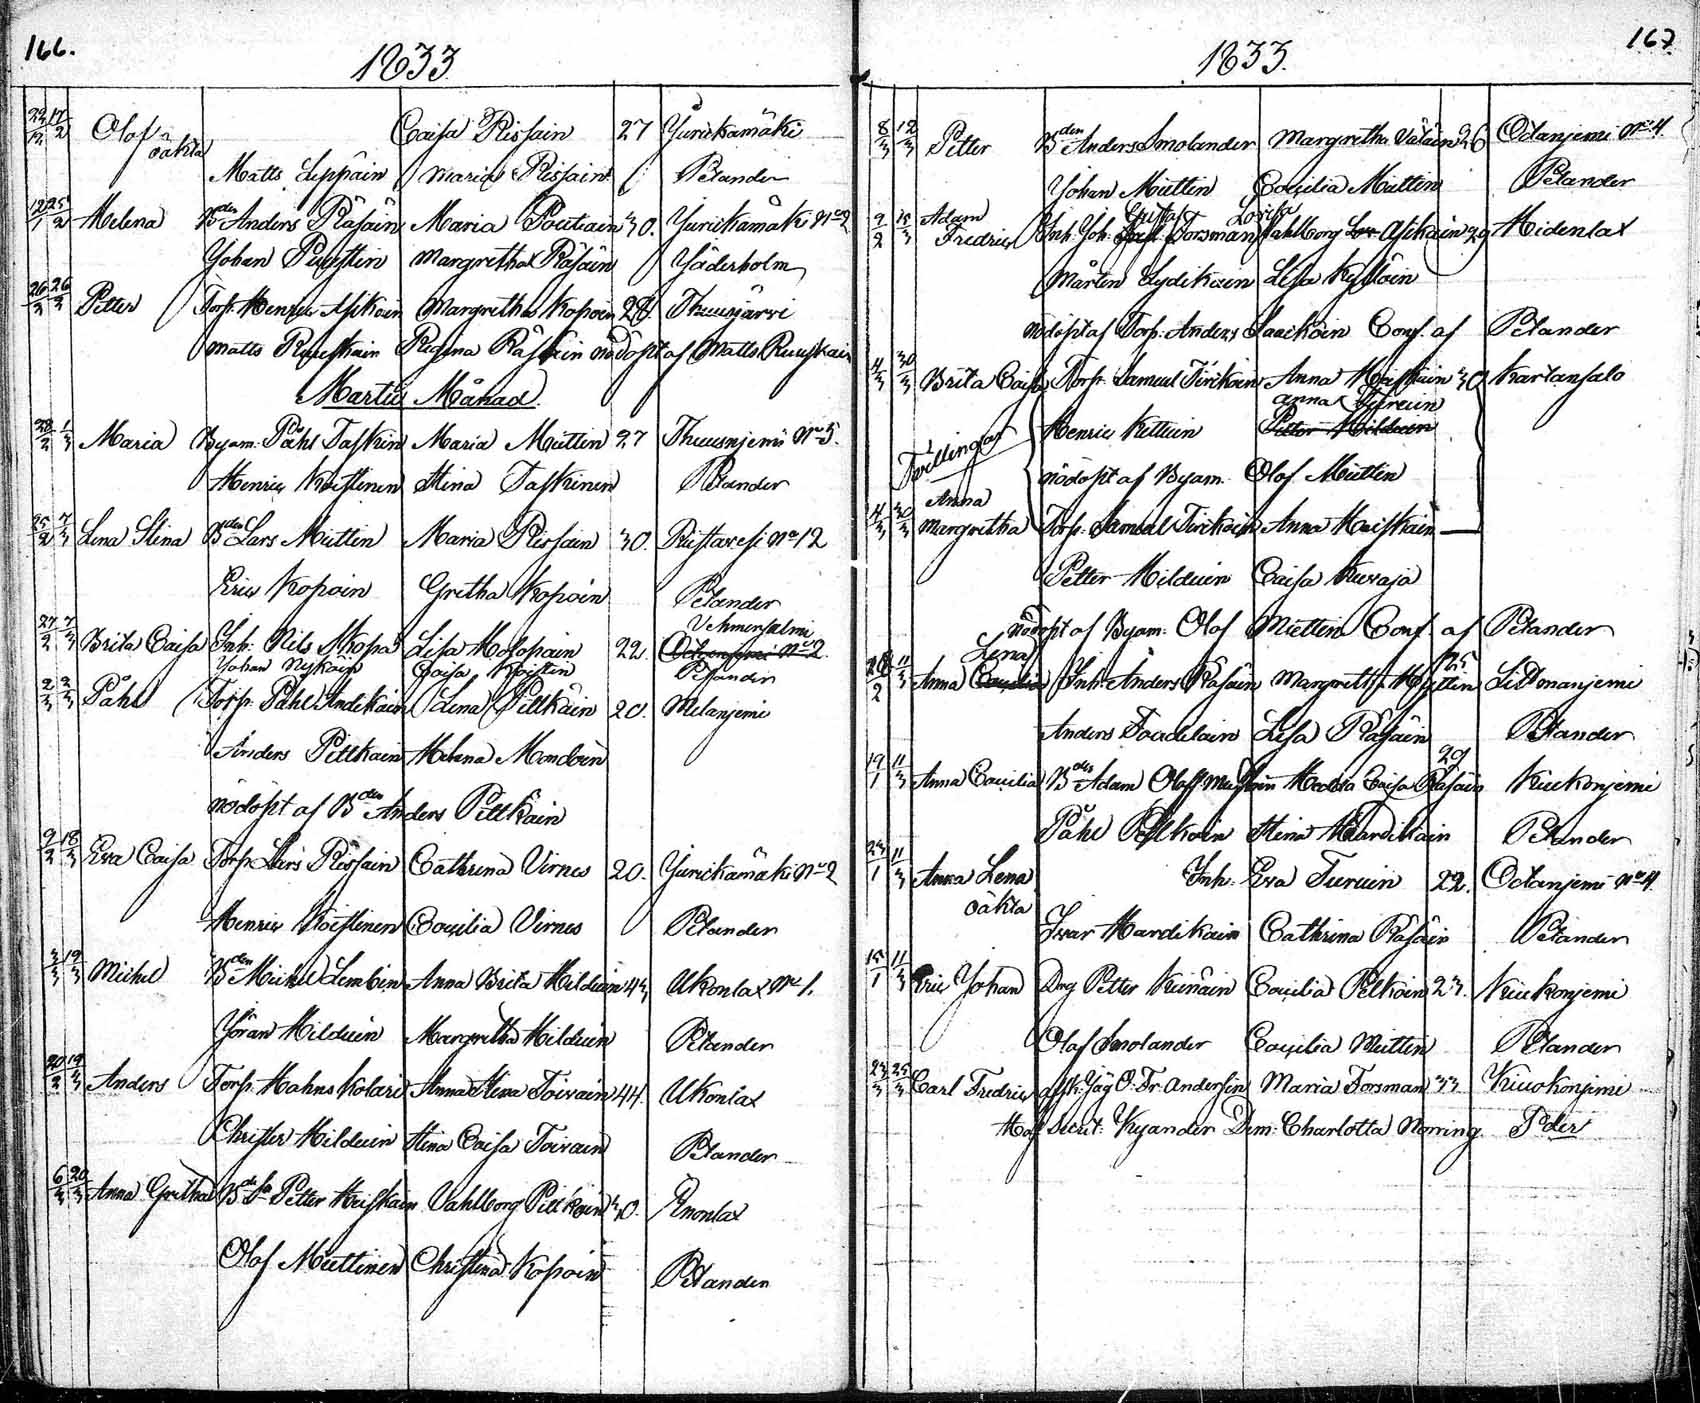 166.
1833
22/12 17/2 Olof Caisa Rissain 27 Jurickamäki
oäkta
Matts Leppäin Maria Rissain Pelander
19/1 25/2 Helena Bden Anders Räsäin Maria Poutiain 30. Jurickamäki No 2
Johan Puustin Margretha Räsäin Söderholm
26/2 26/2 Petter Torp. Henric Asikain Margretha Kopoin 28. Thuusjärvi
Matts Ruuskain Regina Räsäin nödöpt af Matts Ruuskain
Martii Månad.
28/2 1/3 Maria Byam. Påhl Taskin Maria Miettin 27 Thuusnjemi No 5.
Henric Koistinen Stina Taskinen Pelander
25/2 7/3 Lena Stina Bden Lars Miettin Maria Rissain 30. Riistavesi No 12
Eric Kopoin Gretha Kopoin Pelander
Vehmersalmi
27/2 7/3 Brita Caisa Inh: Nils Skopa Lisa Holopain 22. No 2.
Johan Nykäin Caisa Koistin Pelander
2/3 3/3 Påhl Torp. Påhl Andikain Lena Pitkäin 20. Melanjemi
Anders Pitkain Helena Mondoin
nödöpt af Bden Anders Pitkäin
9/2 18/3 Eva Caisa Torp. Lars Rissain Cathrina Virnes 20. Jurickamäki No 2
Henric Koistinen Cecilia Virnes Pelander
3/3 19/3 Michel Bden Michel Lembin Anna Brita Hilduin 43 Ukonlax No 1.
Jöran Hilduin Margretha Hilduin Pelander
20/2 19/3 Anders Torp. Hahns Kolari Anna Stina Toivain 44. Ukonlax
Christer Hilduin Stina Caisa Toivain Pelander
6/3 20/3 Anna Gretha Petter Heiskain Vahlborg Pitkäin 30. Enonlax
Olof Miettinen Christina Kopoin Pelander
167
1833.
8/3 12/3 Petter Bden Anders Smolander Margretha Väläin 26 Odanjemi No 4.
Johan Miettin Cecilia Miettin Pelander
Adam Gustaf Lovisa
9/2 15/3 Fredric Inh. Joh. Forsman Vahlborg Asikain 29 Hidenlax
Mårten Lydikäin Lisa Kylläin
nödöpt af Torp. Anders Laackoin Conf. af Pelander
4/3 30/3 Brita Caisa Torp. Samuel Tirikoin Anna Heiskain 30 Kartansalo
Anna Turuin
Henric Kettuin Petter Hilduin
Tvillingar
nödöpt af Byam. Olof Miettin
Anna
4/3 30/3 Margretha Torp. Samuel Tirikoin Anna Heiskain —
Petter Hilduin Caisa Kuvaja
nödöpt af Byam. Olof Miettin Conf. af Pelander
Lena
2 11/3 Anna Cecilia Inh. Anders Räsäin Margretha Miettin 25 Littmanjemi
Anders Taadelain Lisa Räsäin Pelander
29
19/1 11/3 Anna Cecilia Adam Hedda Caisa Räsäin Kiukonjemi
Påhl Pelkoin Stina Hardikain Pelander
23/1 11/3 Anna Lena Inh. Eva Turuin 22. Odanjemi No 4.
oäkta
Ivar Hardikain Cathrina Räsäin Pelander
15/1 11/3 Eric Johan Dng Petter Kinäin Cecilia Pelkoin 23. Kiukonjemi
Olof Smolander Cecilia Miettin Pelander
23/3 25/3 Carl Fredric Fr. Andersin Maria Forsman 33 Kiuokonjemi
Hof Secret: Kyander Dem: Charlotta Norring Pder